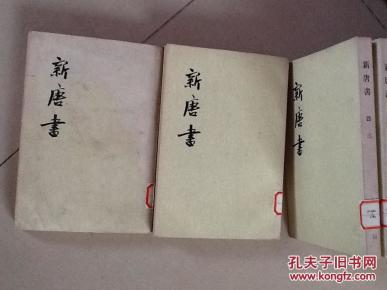 新唐書
新唐書
新唐書
新唐書 四
孔夫子旧书网